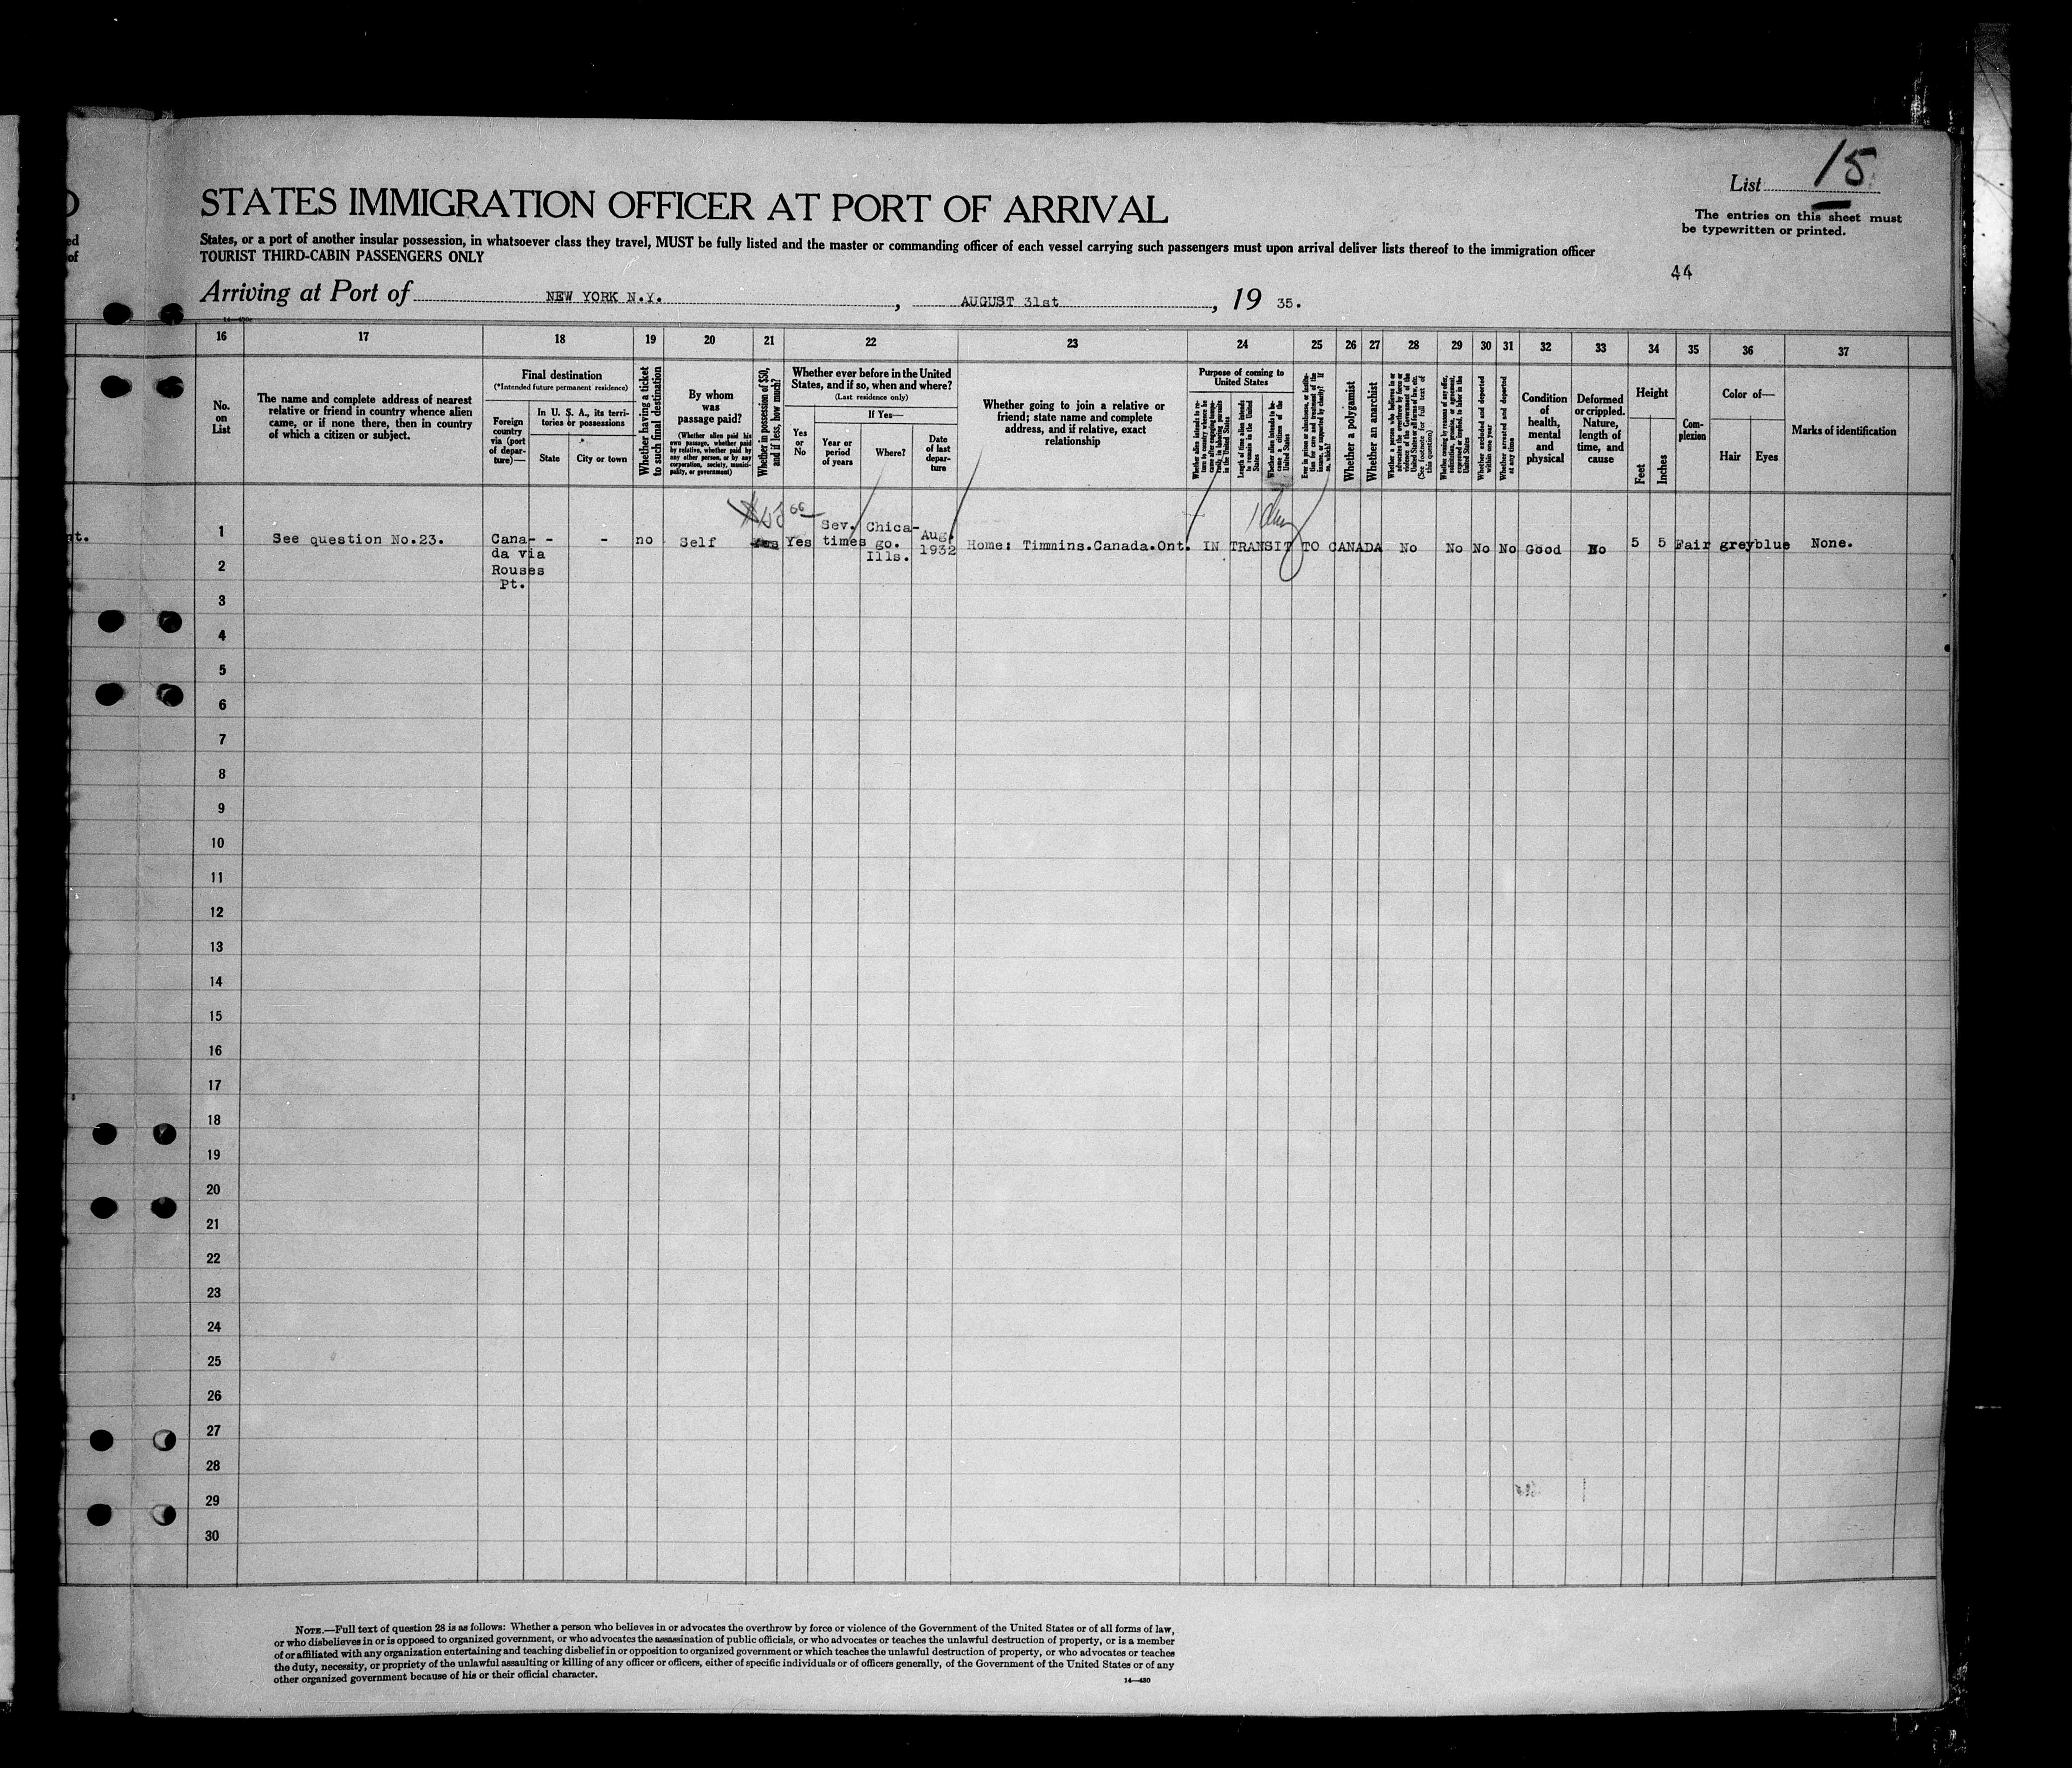 List 15
STATES IMMIGRATION OFFICER AT PORT OF ARRIVAL
The entries on this sheet must
be typewritten or printed.
ed
of
States, or a port of another insular possession, in whatsoever class they travel, MUST be fully listed and the master or commanding officer of each vessel carrying such passengers must upon arrival deliver lists thereof to the immigration officer
TOURIST THIRD-CABIN PASSENGERS ONLY
44
Arriving at Port of NEW YORK N.Y. , AUGUST 31st , 19 35.
16 17 18 19 20 21 22 23 24 25 26 27 28 29 30 31 32 33 34 35 36 37
No.
on
List
The name and complete address of nearest
relative or friend in country whence alien
came, or if none there, then in country
of which a citizen or subject.
Final destination
(*Intended future permanent residence)
Foreign
country
via (port
of depar-
ture)—
In U. S. A., its terri-
tories or possessions
State
City or town
Whether having a ticket
to such final destination
By whom
was
passage paid?
(Whether alien paid his
own passage, whether paid
by relative, whether paid by
any other person, or by any
corporation, society, munici-
pality, or government)
Whether in possession of $50,
and if less, how much?
Whether ever before in the United
States, and if so, when and where?
(Last residence only)
Yes
or
No
If Yes—
Year or
period
of years
Where?
Date
of last
depar-
ture
Whether going to join a relative or
friend; state name and complete
address, and if relative, exact
relationship
Purpose of coming to
United States
Whether alien intends to re-
turn to country whence he
came after engaging tempo-
rarily in laboring pursuits
in the United States
Length of time alien intends
to remain in the United
States
Whether alien intends to be-
come a citizen of the
United States
Ever in prison or almshouse, or institu-
tion for care and treatment of the
insane, or supported by charity? If
so, which?
Whether a polygamist
Whether an anarchist
Whether a person who believes in or
advocates the overthrow by force or
violence of the Government of the
United States or all forms of law, etc.
(See footnote for full text of
this question)
Whether coming by reason of any offer,
solicitation, promise, or agreement,
expressed or implied, to labor in the
United States
Whether excluded and deported
within one year
Whether arrested and deported
at any time
Condition
of
health,
mental
and
physical
Deformed
or crippled.
Nature,
length of
time, and
cause
Height
Feet
Inches
Com-
plexion
Color of—
Hair
Eyes
Marks of identification
1 See question No.23. Cana- - - no Self Yes Yes Sev. Chica- Aug. Home: Timmins.Canada.Ont. IN TRANSIT TO CANADA No No No No Good No 5 5 Fair grey blue None.
da via times go. 1932
Rouses Ills.
Pt.
nt.
2
3
4
5
6
7
8
9
10
11
12
13
14
15
16
17
18
19
20
21
22
23
24
25
26
27
28
29
30
NOTE.—Full text of question 28 is as follows: Whether a person who believes in or advocates the overthrow by force or violence of the Government of the United States or of all forms of law,
or who disbelieves in or is opposed to organized government, or who advocates the assassination of public officials, or who advocates or teaches the unlawful destruction of property, or is a member
of or affiliated with any organization entertaining and teaching disbelief in or opposition to organized government or which teaches the unlawful destruction of property, or who advocates or teaches
the duty, necessity, or propriety of the unlawful assaulting or killing of any officer or officers, either of specific individuals or of officers generally, of the Government of the United States or of any
other organized government because of his or their official character.
14—430